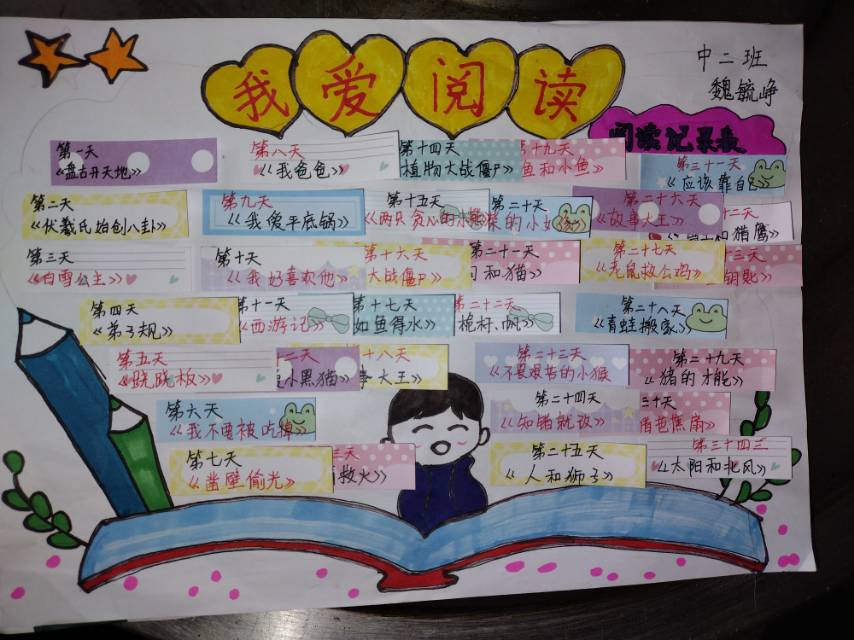 我爱阅读
中二班
魏毓峥
阅读记录表
第一天
《盘古开天地》
第二天
《伏羲氏始创八卦》
第三天
《白雪公主》
第四天
《弟子规》
第五天
《跷跷板》
第六天
《我不要被吃掉》
第七天
《凿壁偷光》
第八天
《我爸爸》
第九天
《我爱平底锅》
第十天
《我好喜欢他》
十一天
《西游记》
二天
小黑猫》
三天
救火》
第十四天
植物大战僵尸
第十五天
《两只贪心的小熊
第十六天
大战僵尸
第十七天
如鱼得水》
十八天
大王》
十九天
鱼和小鱼》
菜的小
第二十一天
和猫》
第二十二天
桅杆、帆》
第二十三天
《不畏艰苦的小猴
第二十四天
《知错就改》
第二十五天
《人和狮子》
第二十六天
《故事大王》
第二十七天
《老鼠救公鸡》
第二十八天
《青蛙搬家》
第二十九天
《猪的才能》
三十天
第三十一天
《应该靠自己》
二天
和猎鹰》
三天
钥匙》
第三四三
《太阳和北风》